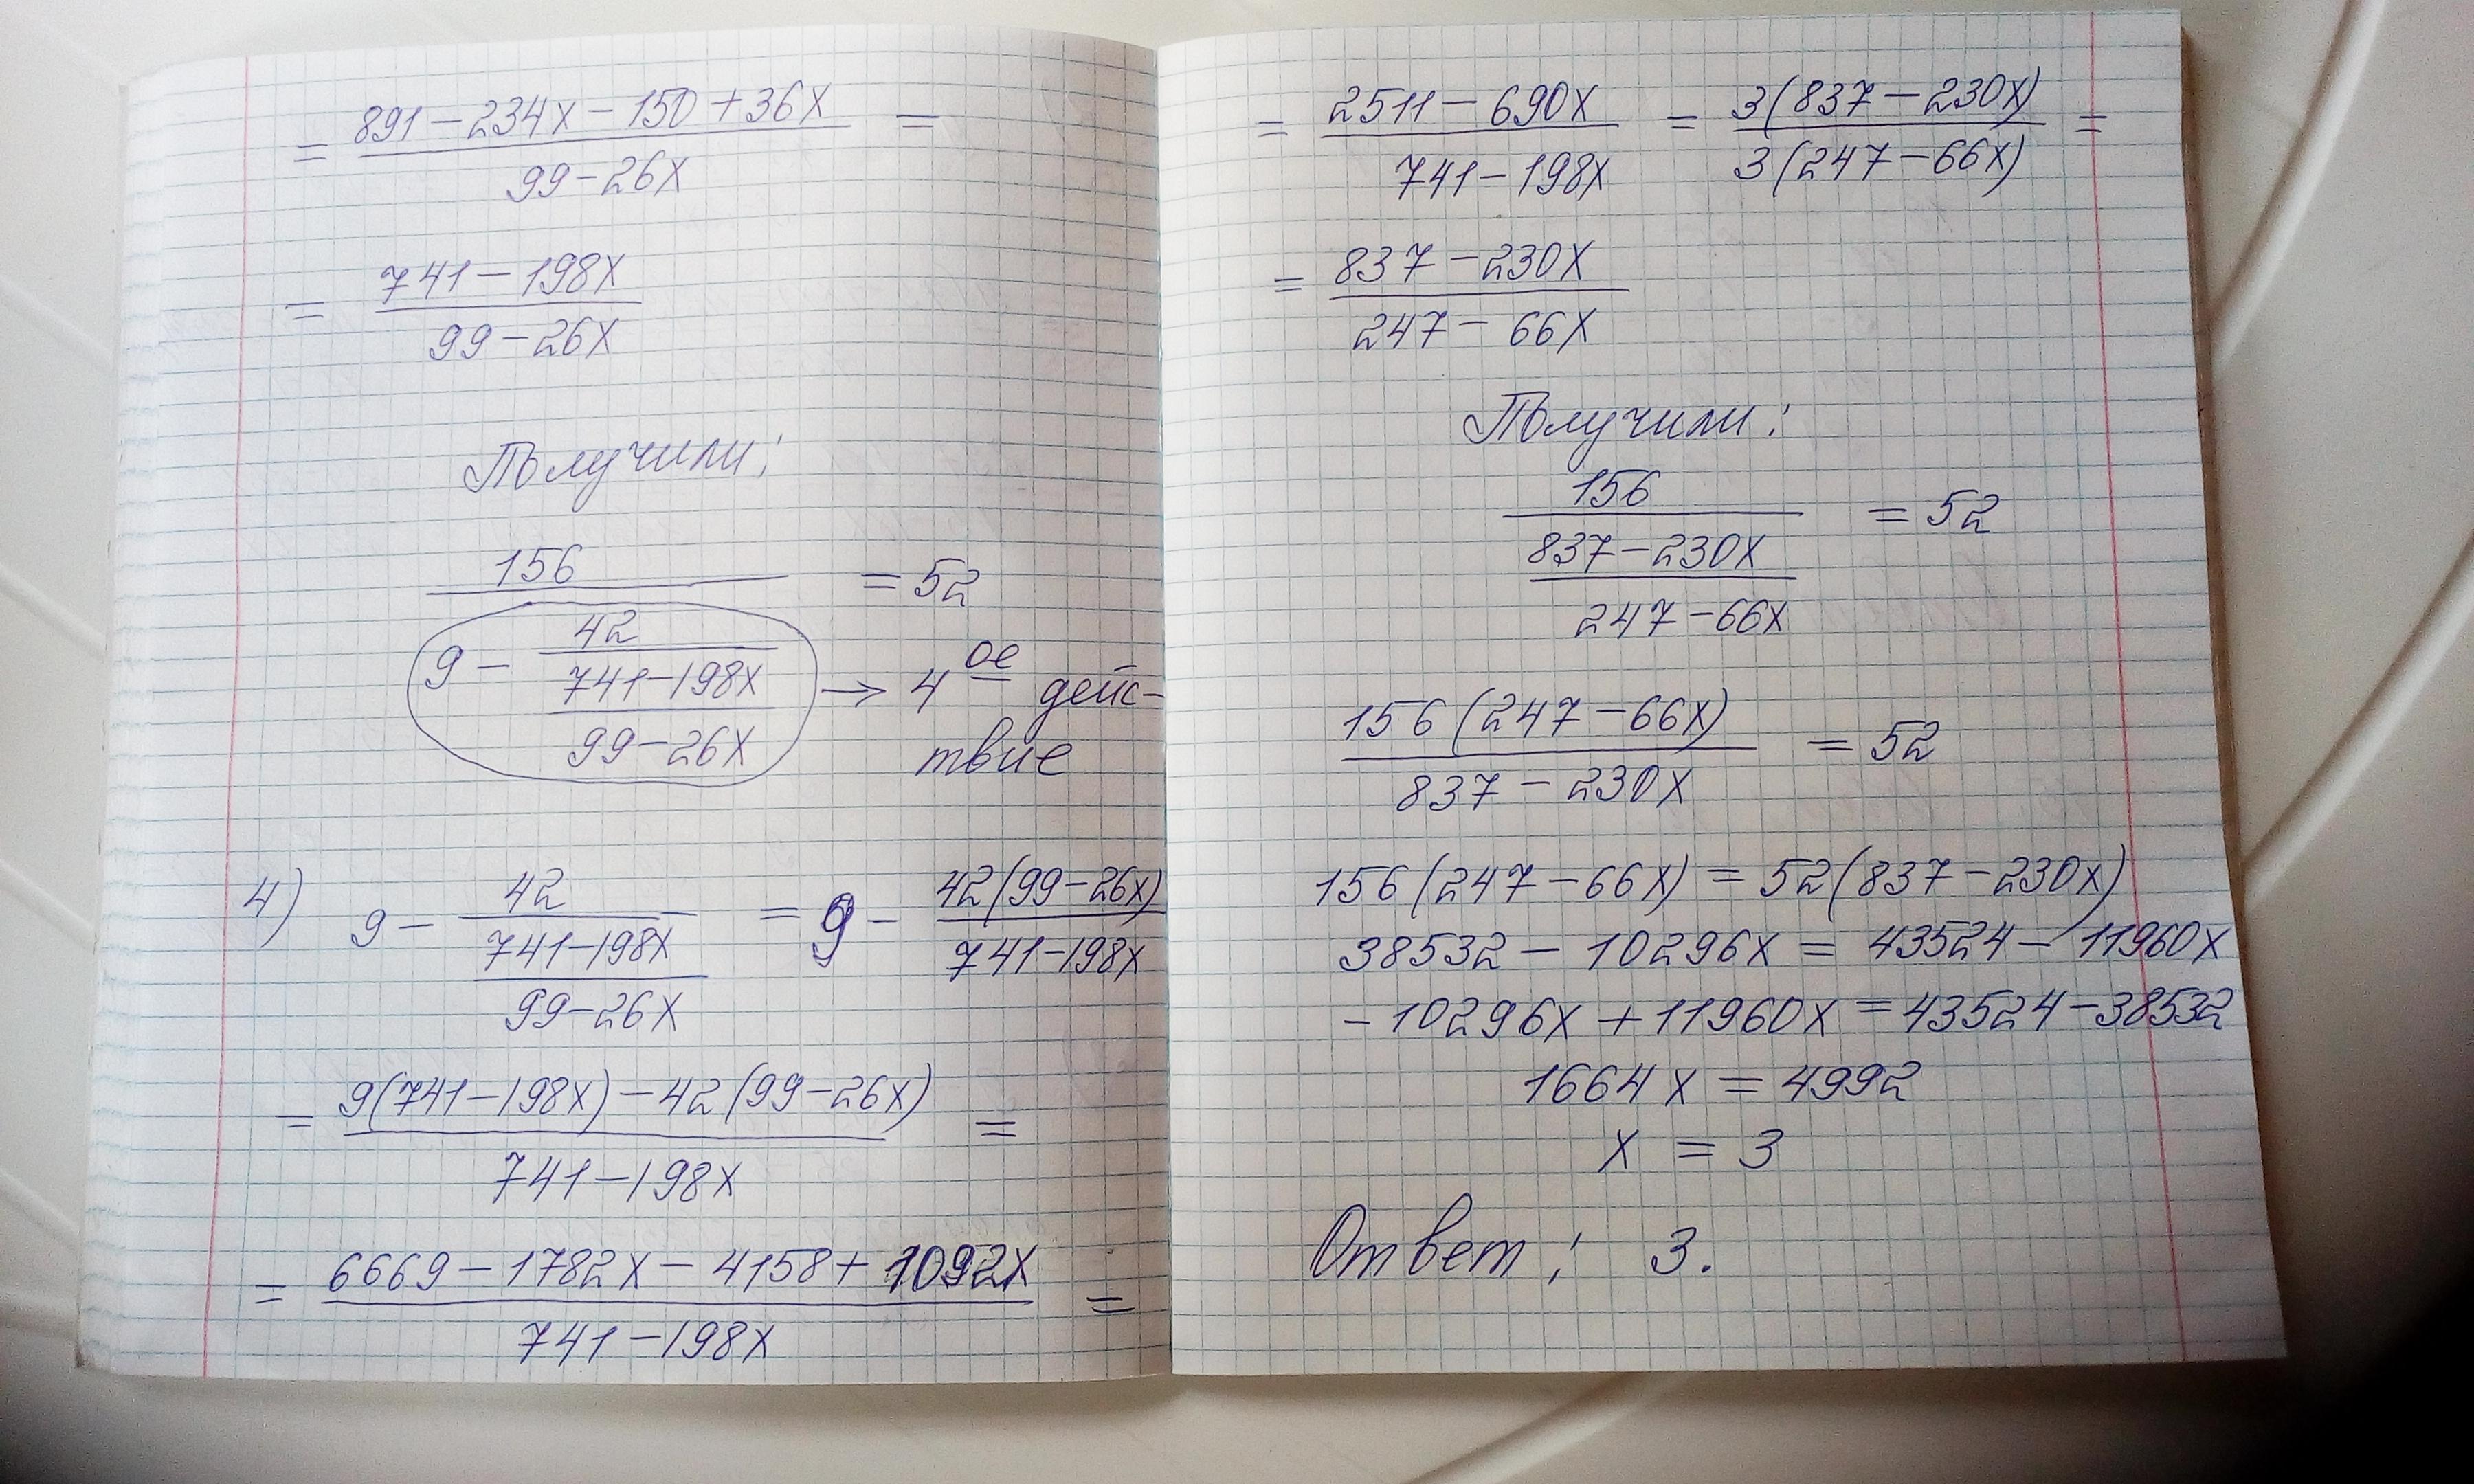 = 891 - 234x - 150 + 36x =
99 - 26x
= 741 - 198x
99 - 26x
Получили:
156
= 52
9 - 42
741 - 198x
99 - 26x
→ 4 ое дейс-
твие
4) 9 - 42 = 9 - 42(99 - 26x)
741 - 198x 741 - 198x
99 - 26x
= 9(741 - 198x) - 42(99 - 26x) =
741 - 198x
= 6669 - 1782x - 4158 + 1092x =
741 - 198x
= 2511 - 690x = 3(837 - 230x) =
741 - 198x 3(247 - 66x)
= 837 - 230x
247 - 66x
Получили:
156 = 52
837 - 230x
247 - 66x
156(247 - 66x) = 52
837 - 230x
156(247 - 66x) = 52(837 - 230x)
38532 - 10296x = 43524 - 11960x
-10296x + 11960x = 43524 - 38532
1664x = 4992
x = 3
Ответ: 3.